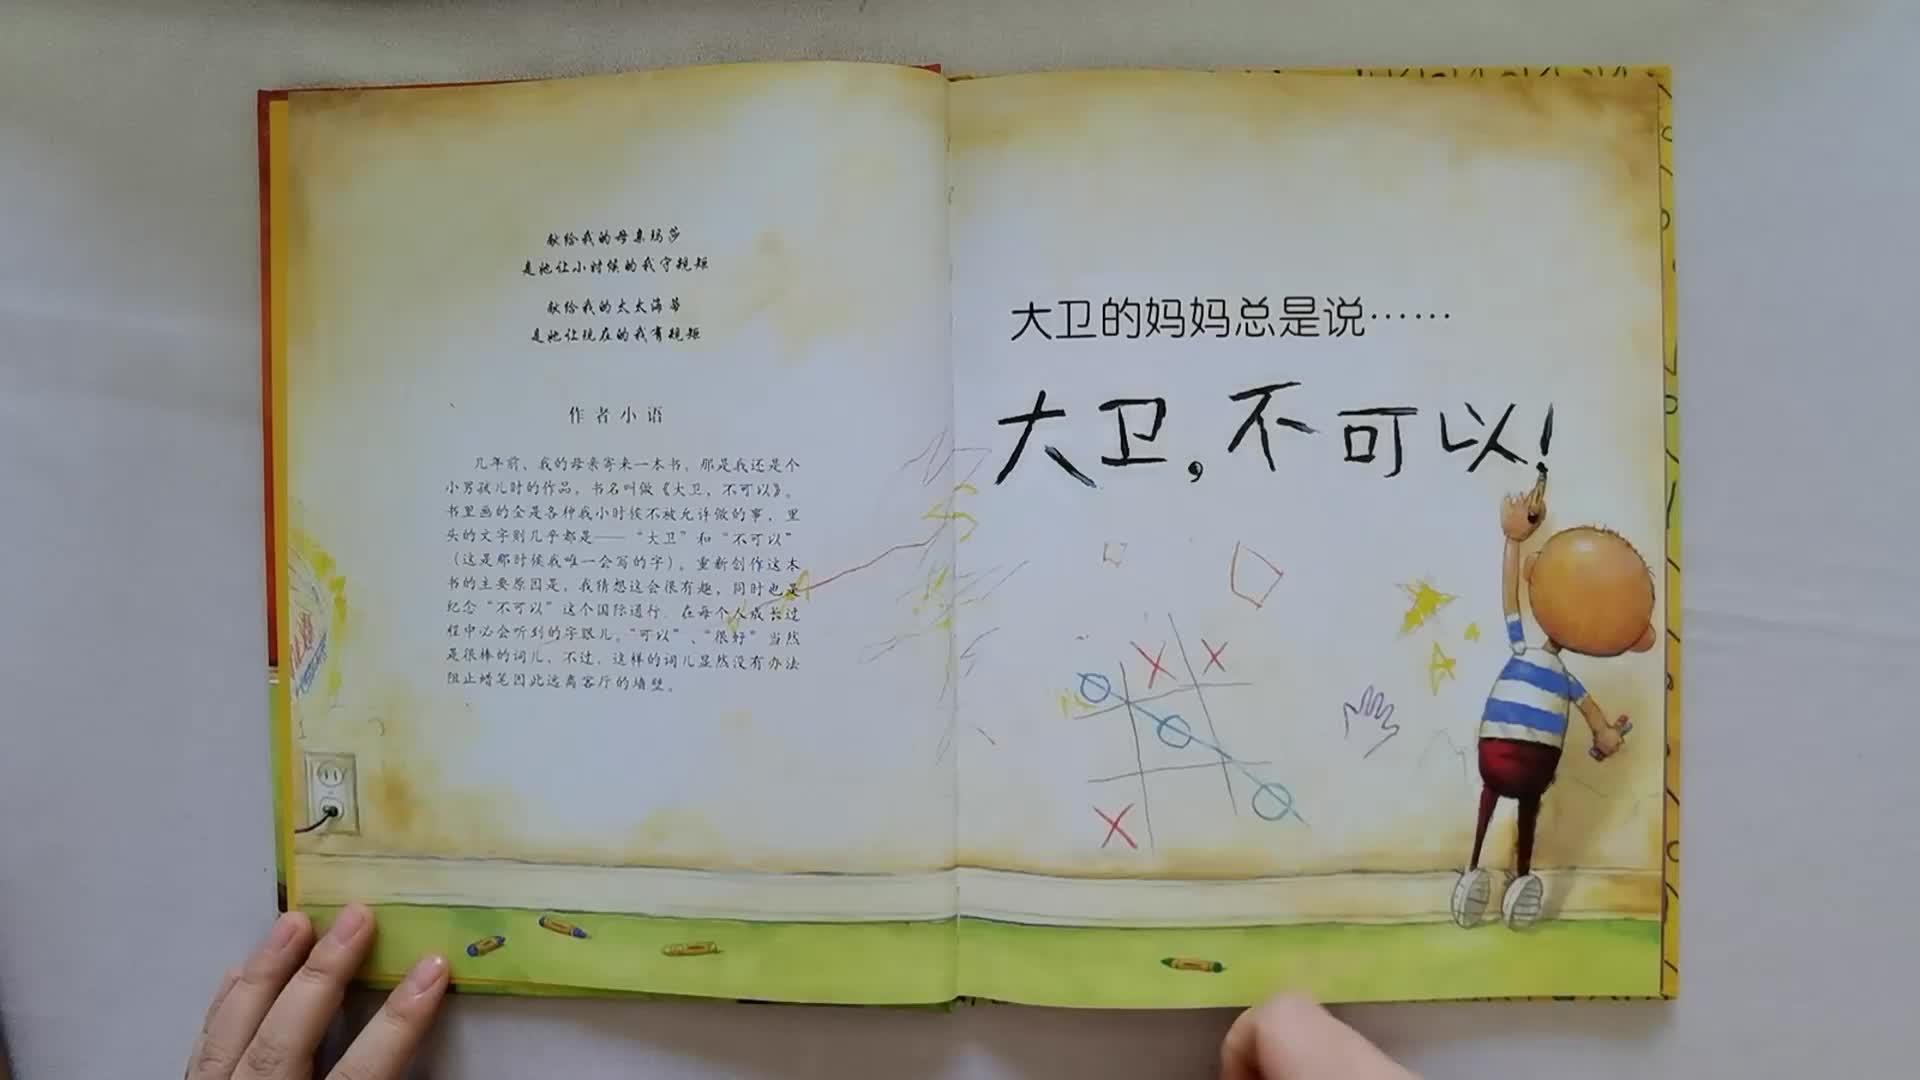 献给我的母亲玛莎
是她让小时候的我守规矩
献给我的太太海蒂
是她让现在的我有规矩
作者小语
几年前，我的母亲寄来一本书，那是我还是个
小男孩儿时的作品，书名叫做《大卫，不可以》。
书里画的全是各种我小时候不被允许做的事，里
头的文字则几乎都是——“大卫”和“不可以”
（这是那时候我唯一会写的字）。重新创作这本
书的主要原因是，我猜想这会很有趣，同时也是
纪念“不可以”这个国际通行、在每个人成长过
程中必会听到的字眼儿。“可以”、“很好”当然
是很棒的词儿，不过，这样的词儿显然没有办法
阻止蜡笔因此远离客厅的墙壁。
大卫的妈妈总是说……
大卫，不可以！